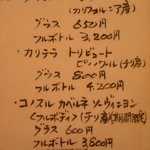 (カリフォルニア産)
グラス 650円
フルボトル 3,200円
・カリテラ トリビュート
ピノノワール(チリ産)
グラス 800円
フルボトル 4,200円
・コノスル カベルネ ソーヴィニヨン
<フルボディ>(チリ産)(期間限定)
グラス 600円
フルボトル 3,800円